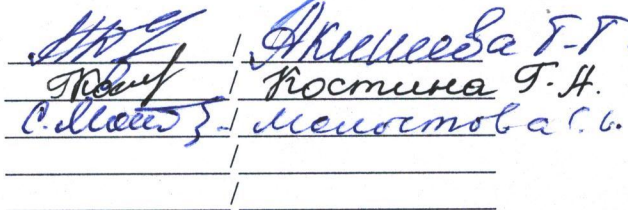 / Акишева Г.Г.
/ Костина Г.А.
С. Мол / Молостова С.И.
/
/